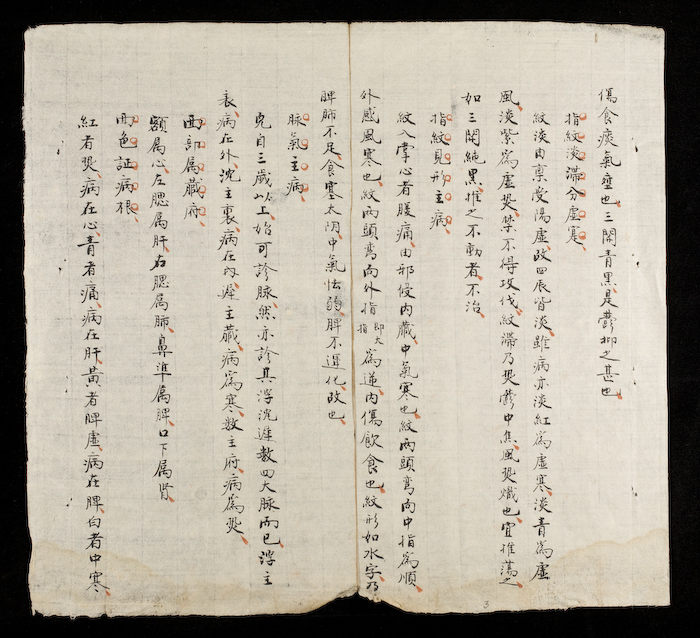 傷食痰氣壅也三関青黑是鬱抑之甚也
指紋淡滯分虛寔
紋淡由稟受陽虛故四辰皆淡雖病亦淡紅為虛寒淡青為虛
風淡紫為虛熒禁不得攻伐紋滯乃熒鬱中焦風熒熾也宜推蕩之
如三関純黑推之不動者不治
指紋見形主病
紋入掌心者腹痛由邪侵內藏中氣寒也紋兩頭彎向中指為順
外感風寒也紋兩頭彎向外指即大指為逆內傷飲食也紋形如水字乃
脾肺不足食塞太阴中氣怯弱脾不運化故也
脉氣主病
兒自三歲以上始可診脉然亦診其浮沉遲数四大脉而已浮主
表病在外沈主裏病在內遲主藏病為寒数主府病為熒
面部属藏府
額属心左腮属肝右腮属肺鼻準属脾口下属肾
面色証病根
紅者熒病在心青者痛病在肝黃者脾虛病在脾白者中寒
3